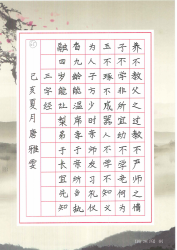 养不教父之过教不严师之惰
子不学非所宜幼不学老何为
玉不琢不成器人不学不知义
为人子方少时亲师友习礼仪
香九龄能温席孝于亲所当执
融四岁能让梨弟于长宜先知
三字经
己亥夏月唐雅雯